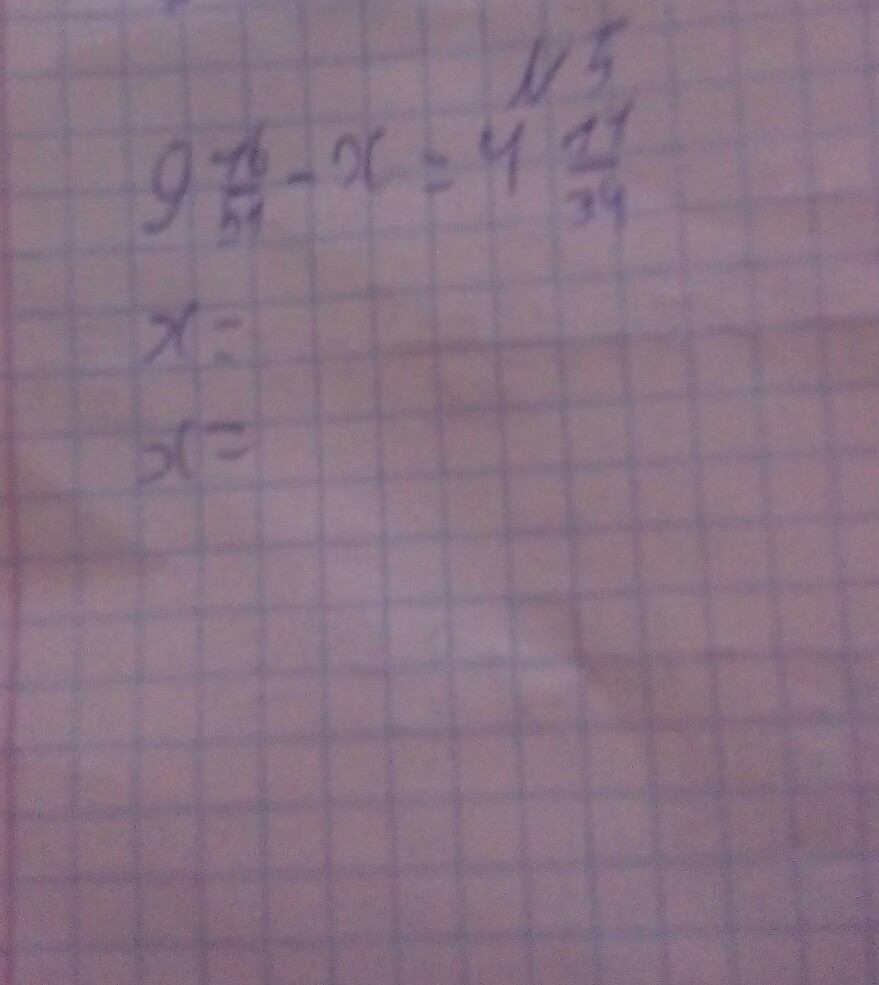 №5
9 16/51 - x = 4 11/34
x =
x =